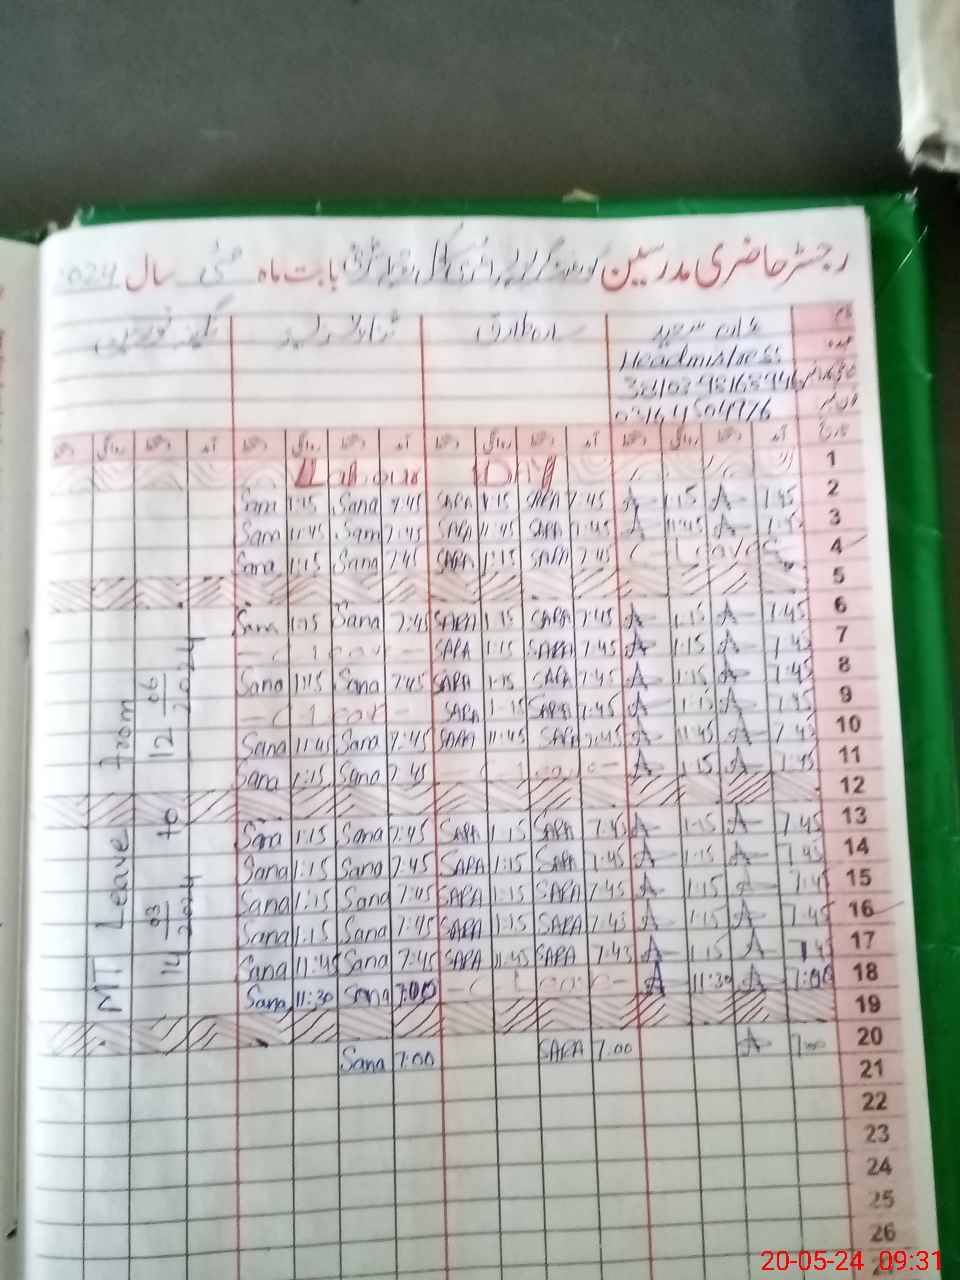 رجسٹر حاضری مدرسین گورنمنٹ گرلز پرائمری سکول بابت ماہ مئی سال 2024
نام سارہ طارق
عہدہ Headmistress
فون نمبر 03164504976
تاریخ آمد دستخط روانگی دستخط آمد دستخط روانگی دستخط آمد دستخط روانگی دستخط آمد دستخط روانگی دستخط
Labour Day 1
Sana 1:15 Sana 7:45 SARA 1:15 SARA 7:45 A 1:15 A 7:45 2
Sana 11:45 Sana 7:45 SARA 11:45 SARA 7:45 A 11:45 A 7:45 3
Sana 1:15 Sana 7:45 SARA 1:15 SARA 7:45 C Leave 4
5
Sana 1:15 Sana 7:45 SARA 1:15 SARA 7:45 A 1:15 A 7:45 6
C Leave SARA 1:15 SARA 7:45 A 1:15 A 7:45 7
Sana 1:15 Sana 7:45 SARA 1:15 SARA 7:45 A 1:15 A 7:45 8
C Leave SARA 1:15 SARA 7:45 A 1:15 A 7:45 9
Sana 11:45 Sana 7:45 SARA 11:45 SARA 7:45 A 11:45 A 7:45 10
Sana 1:15 Sana 7:45 C Leave A 1:15 A 7:45 11
12
Sana 1:15 Sana 7:45 SARA 1:15 SARA 7:45 A 1:15 A 7:45 13
Sana 1:15 Sana 7:45 SARA 1:15 SARA 7:45 A 1:15 A 7:45 14
Sana 1:15 Sana 7:45 SARA 1:15 SARA 7:45 A 1:15 A 7:45 15
Sana 1:15 Sana 7:45 SARA 1:15 SARA 7:45 A 1:15 A 7:45 16
Sana 11:45 Sana 7:45 SARA 11:45 SARA 7:45 A 1:15 A 7:45 17
Sana 11:30 Sana 7:00 C Leave A 11:30 A 7:00 18
19
Sana 7:00 SARA 7:00 A 7:00 20
21
22
23
24
25
26
MT Leave from
14 03 2024 to 12 06 2024
20-05-24 09:31